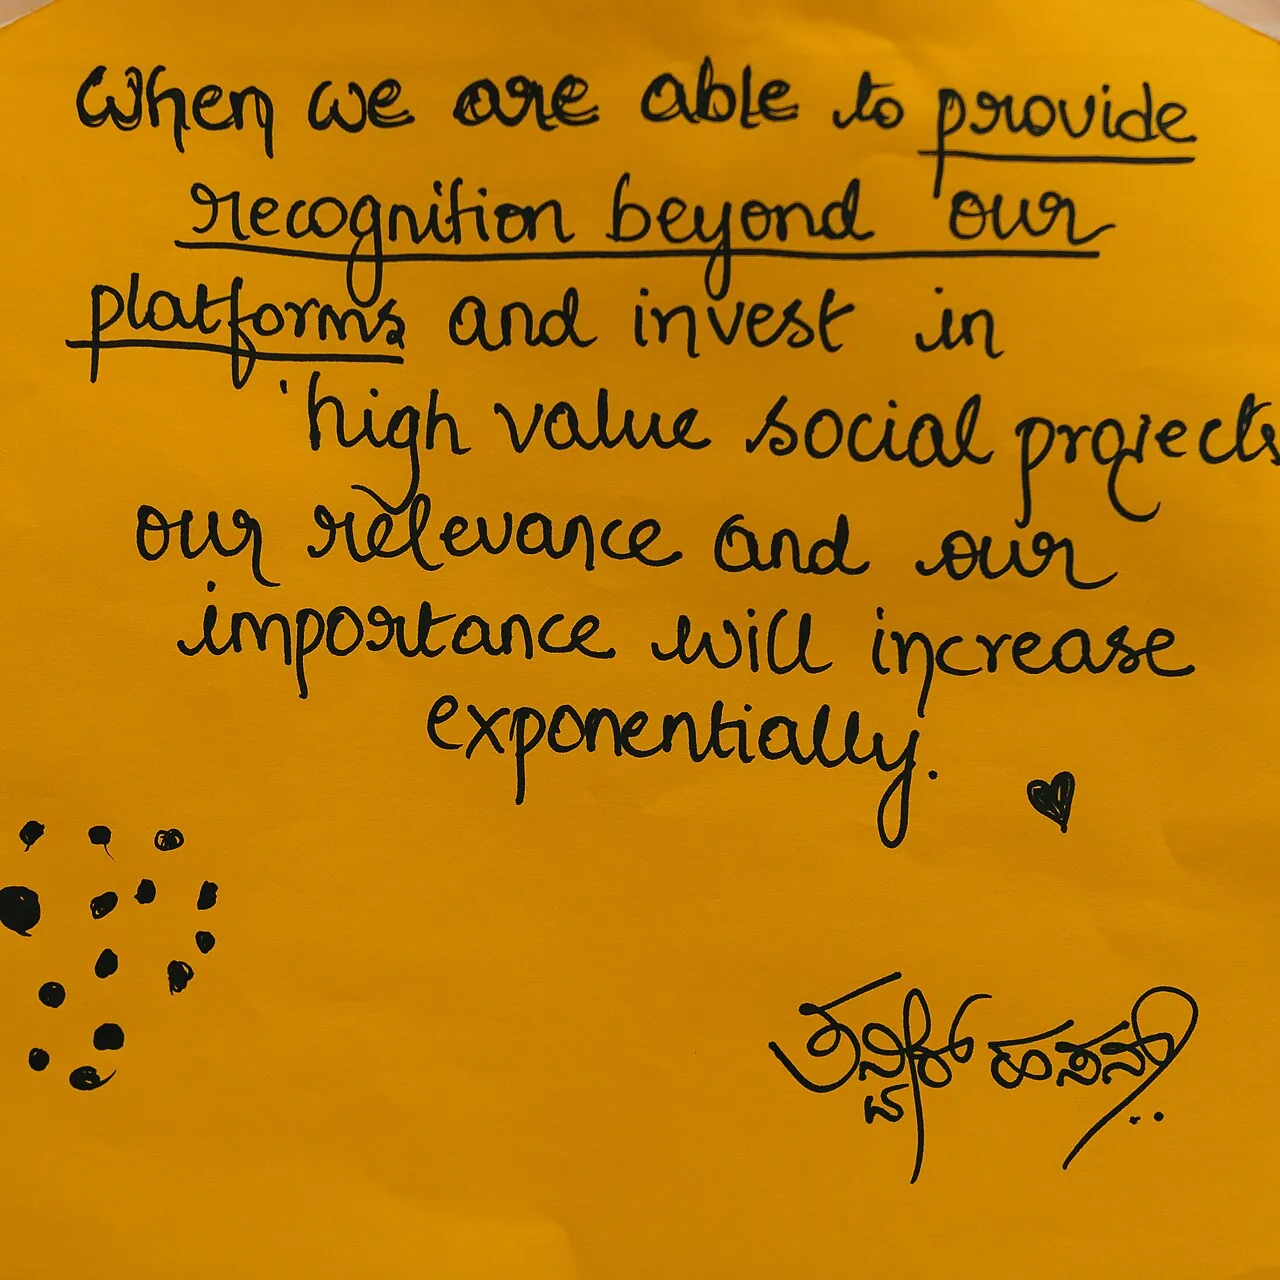 When we are able to provide
recognition beyond our
platforms and invest in
high value social projects
our relevance and our
importance will increase
exponentially.
ತನ್ವಿರ್ ಹಸನ್